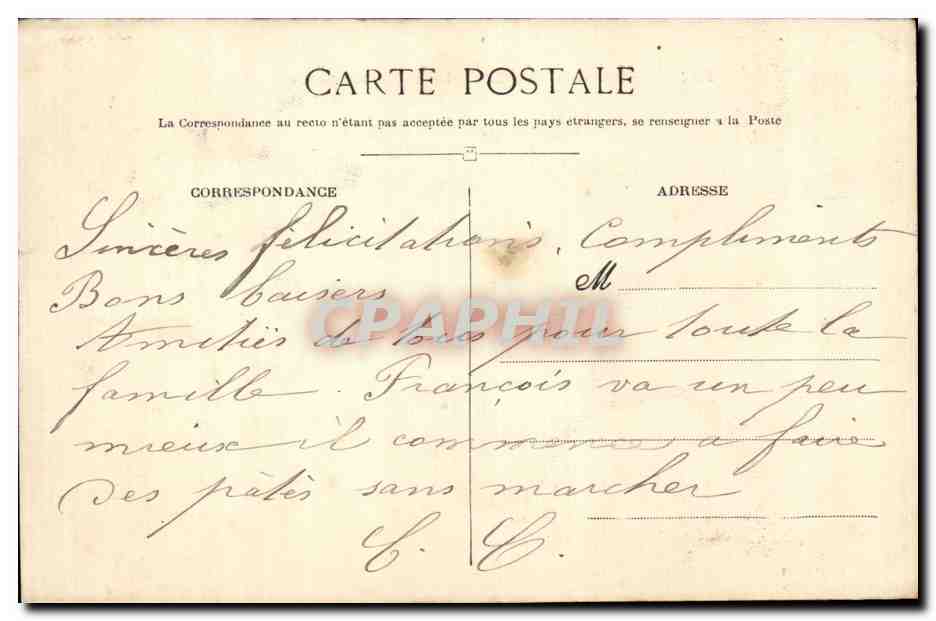 CARTE POSTALE
La Correspondance au recto n'étant pas acceptée par tous les pays étrangers, se renseigner à la Poste
CORRESPONDANCE
ADRESSE
Sincères félicitations, Compliments
M
Bons baisers
CPAPHIL
Amitiés de tous pour toute la
famille. François va un peu
mieux il commence a faire
des pâtés sans marcher
C. C.